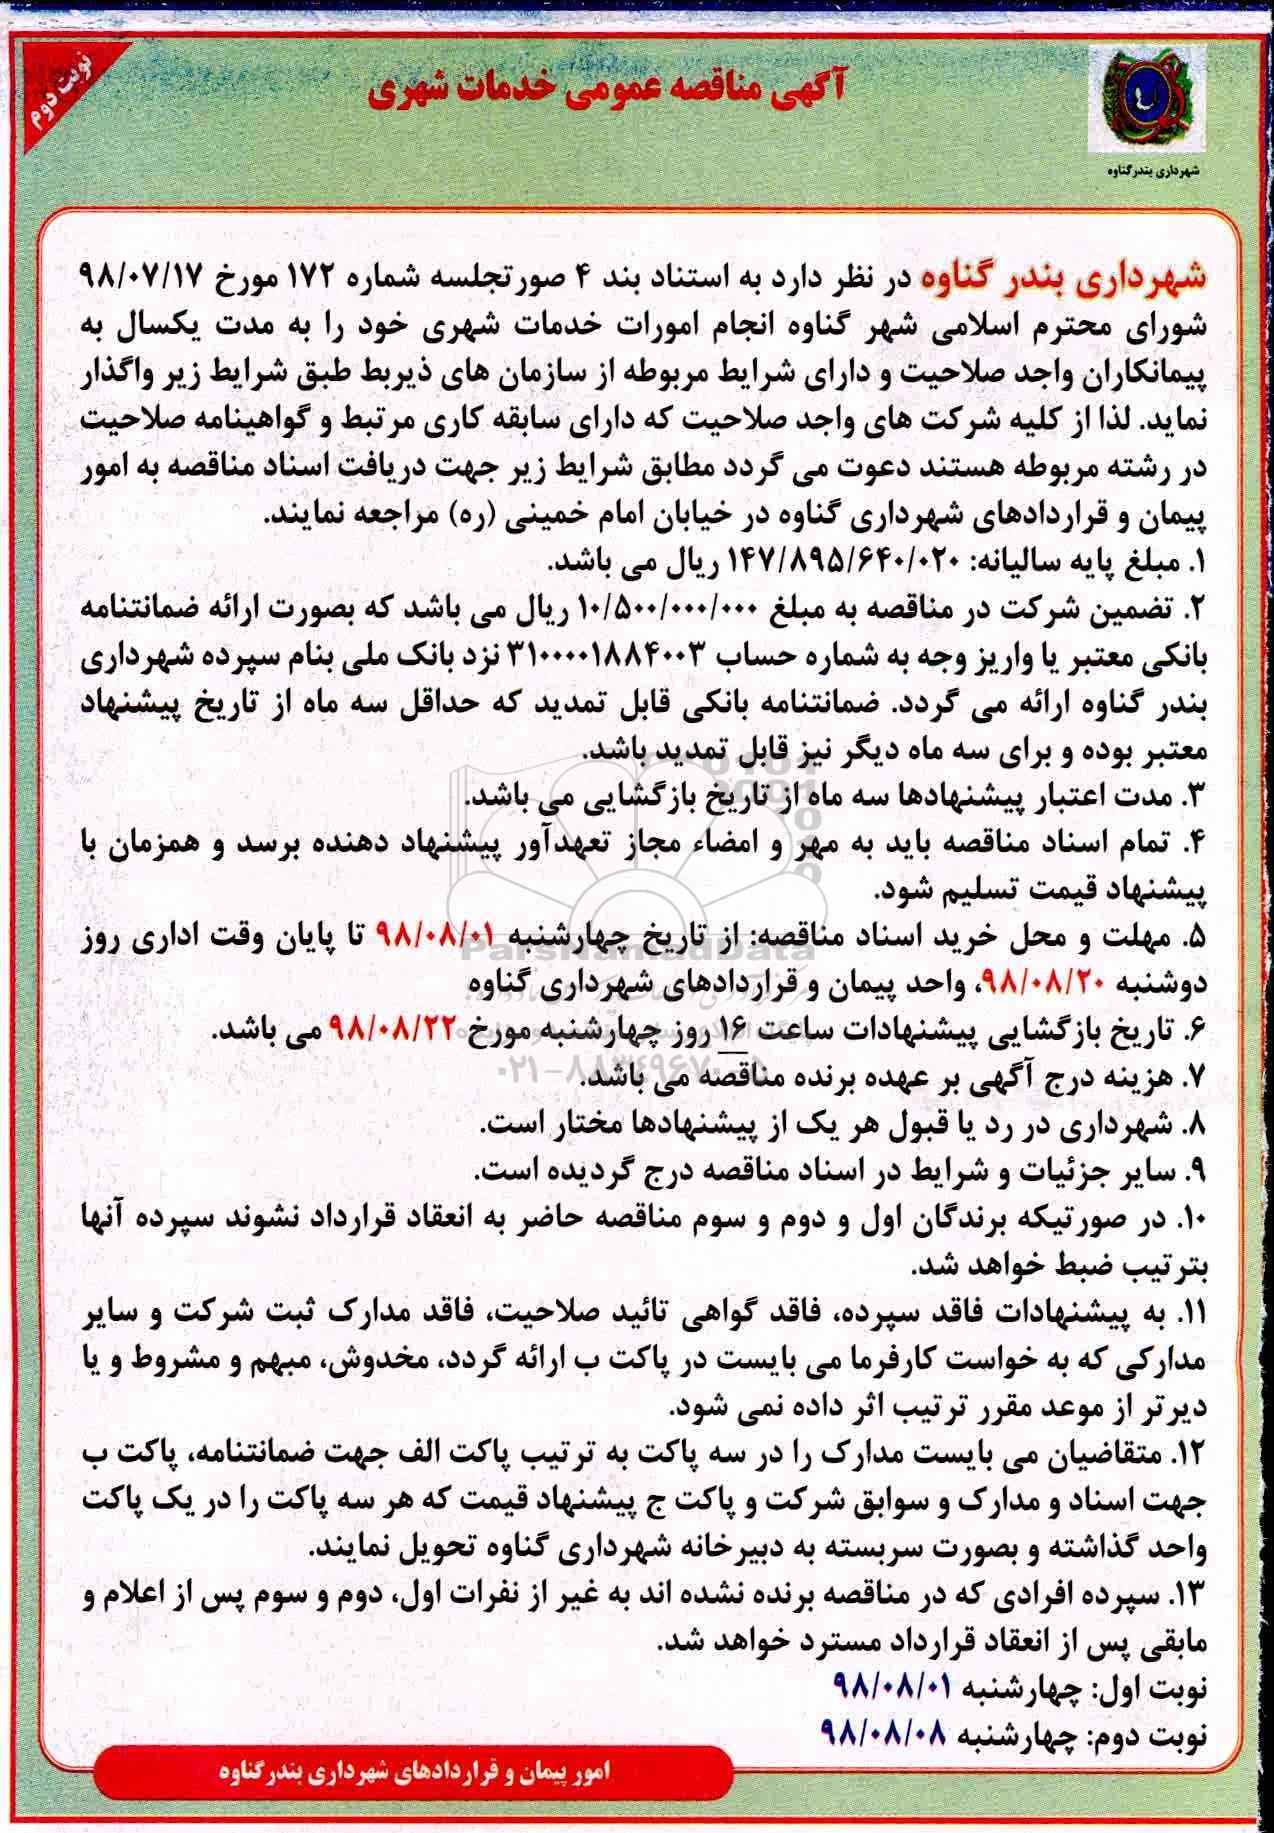 آگهی مناقصه عمومی خدمات شهری
نوبت دوم
شهرداری بندرگناوه
شهرداری بندر گناوه در نظر دارد به استناد بند ۴ صورتجلسه شماره ۱۷۲ مورخ ۹۸/۰۷/۱۷
شورای محترم اسلامی شهر گناوه انجام امورات خدمات شهری خود را به مدت یکسال به
پیمانکاران واجد صلاحیت و دارای شرایط مربوطه از سازمان های ذیربط طبق شرایط زیر واگذار
نماید. لذا از کلیه شرکت های واجد صلاحیت که دارای سابقه کاری مرتبط و گواهینامه صلاحیت
در رشته مربوطه هستند دعوت می گردد مطابق شرایط زیر جهت دریافت اسناد مناقصه به امور
پیمان و قراردادهای شهرداری گناوه در خیابان امام خمینی (ره) مراجعه نمایند.
۱. مبلغ پایه سالیانه: ۱۴۷/۸۹۵/۶۴۰/۰۲۰ ریال می باشد.
۲. تضمین شرکت در مناقصه به مبلغ ۱۰/۵۰۰/۰۰۰/۰۰۰ ریال می باشد که بصورت ارائه ضمانتنامه
بانکی معتبر یا واریز وجه به شماره حساب ۳۱۰۰۰۰۱۸۸۴۰۰۳ نزد بانک ملی بنام سپرده شهرداری
بندر گناوه ارائه می گردد. ضمانتنامه بانکی قابل تمدید که حداقل سه ماه از تاریخ پیشنهاد
معتبر بوده و برای سه ماه دیگر نیز قابل تمدید باشد.
۳. مدت اعتبار پیشنهادها سه ماه از تاریخ بازگشایی می باشد.
۴. تمام اسناد مناقصه باید به مهر و امضاء مجاز تعهدآور پیشنهاد دهنده برسد و همزمان با
پیشنهاد قیمت تسلیم شود.
۵. مهلت و محل خرید اسناد مناقصه: از تاریخ چهارشنبه ۹۸/۰۸/۰۱ تا پایان وقت اداری روز
ParsNamadData
دوشنبه ۹۸/۰۸/۲۰، واحد پیمان و قراردادهای شهرداری گناوه
۶. تاریخ بازگشایی پیشنهادات ساعت ۱۶ روز چهارشنبه مورخ ۹۸/۰۸/۲۲ می باشد.
۰۲۱-۸۸۳۴۹۶۷۰-۵
۷. هزینه درج آگهی بر عهده برنده مناقصه می باشد.
۸. شهرداری در رد یا قبول هر یک از پیشنهادها مختار است.
۹. سایر جزئیات و شرایط در اسناد مناقصه درج گردیده است.
۱۰. در صورتیکه برندگان اول و دوم و سوم مناقصه حاضر به انعقاد قرارداد نشوند سپرده آنها
بترتیب ضبط خواهد شد.
۱۱. به پیشنهادات فاقد سپرده، فاقد گواهی تائید صلاحیت، فاقد مدارک ثبت شرکت و سایر
مدارکی که به خواست کارفرما می بایست در پاکت ب ارائه گردد، مخدوش، مبهم و مشروط و یا
دیرتر از موعد مقرر ترتیب اثر داده نمی شود.
۱۲. متقاضیان می بایست مدارک را در سه پاکت به ترتیب پاکت الف جهت ضمانتنامه، پاکت ب
جهت اسناد و مدارک و سوابق شرکت و پاکت ج پیشنهاد قیمت که هر سه پاکت را در یک پاکت
واحد گذاشته و بصورت سربسته به دبیرخانه شهرداری گناوه تحویل نمایند.
۱۳. سپرده افرادی که در مناقصه برنده نشده اند به غیر از نفرات اول، دوم و سوم پس از اعلام و
مابقی پس از انعقاد قرارداد مسترد خواهد شد.
نوبت اول: چهارشنبه ۹۸/۰۸/۰۱
نوبت دوم: چهارشنبه ۹۸/۰۸/۰۸
امور پیمان و قراردادهای شهرداری بندرگناوه